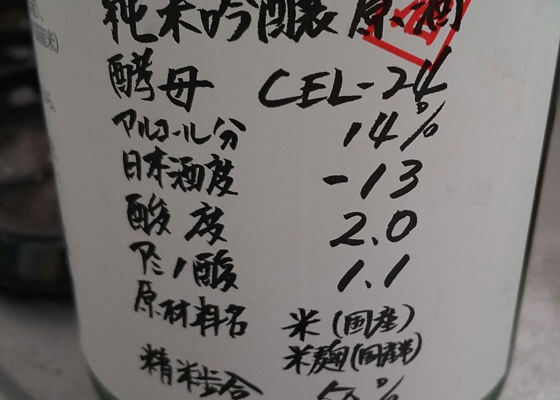 純米吟醸 原酒
酵母 CEL-24
アルコール分 14%
日本酒度 -13
酸度 2.0
アミノ酸 1.1
原材料名 米(国産)
米麹(国産)
精米歩合 50%